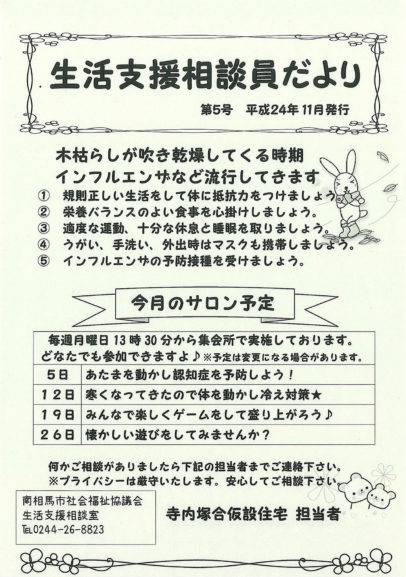 生活支援相談員だより
第5号 平成24年11月発行
木枯らしが吹き乾燥してくる時期
インフルエンザなど流行してきます
① 規則正しい生活をして体に抵抗力をつけましょう。
② 栄養バランスのよい食事を心掛けしましょう。
③ 適度な運動、十分な休息と睡眠を取りましょう。
④ うがい、手洗い、外出時はマスクも携帯しましょう。
⑤ インフルエンザの予防接種を受けましょう。
今月のサロン予定
毎週月曜日13時30分から集会所で実施しております。
どなたでも参加できますよ♪※予定は変更になる場合があります。
5日 あたまを動かし認知症を予防しよう！
12日 寒くなってきたので体を動かし冷え対策★
19日 みんなで楽しくゲームをして盛り上がろう♪
26日 懐かしい遊びをしてみませんか？
何かご相談がありましたら下記の担当者までご連絡下さい。
※プライバシーは厳守いたします。安心してご相談下さい。
南相馬市社会福祉協議会
生活支援相談室
℡0244-26-8823
寺内塚合仮設住宅 担当者